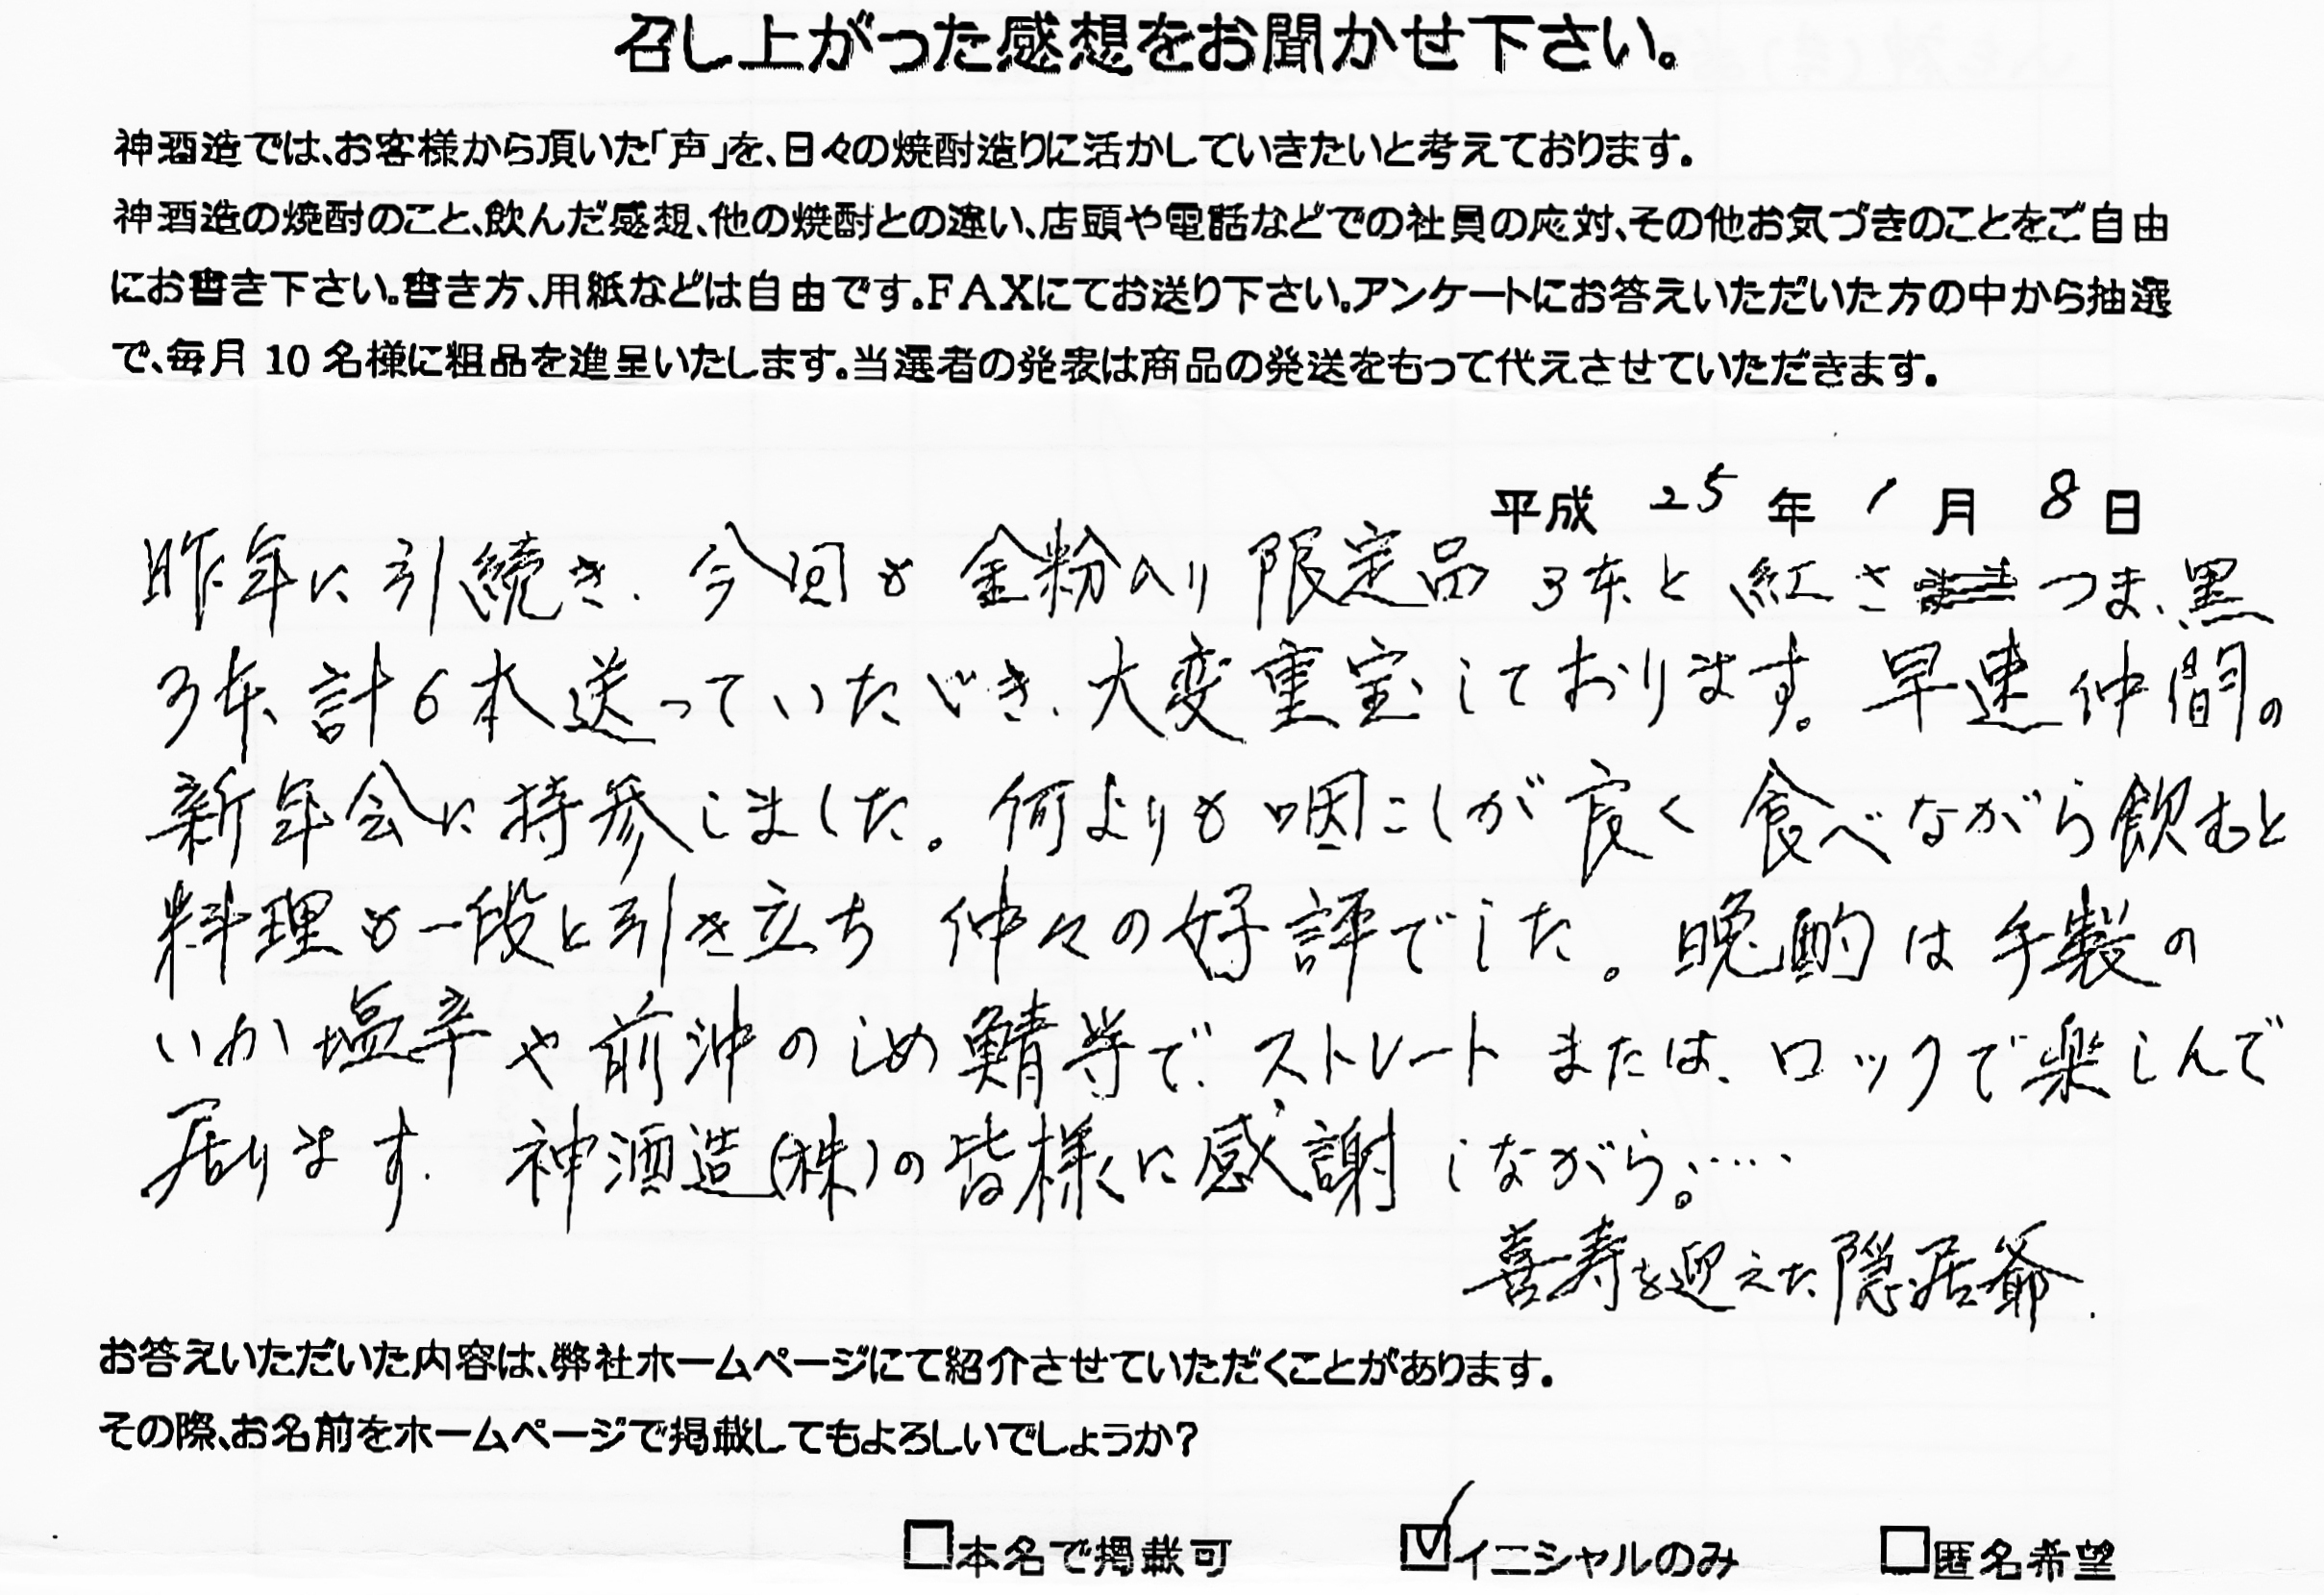 召し上がった感想をお聞かせ下さい。
神酒造では、お客様から頂いた「声」を、日々の焼酎造りに活かしていきたいと考えております。
神酒造の焼酎のこと、飲んだ感想、他の焼酎との違い、店頭や電話などでの社員の応対、その他お気づきのことをご自由
にお書き下さい。書き方、用紙などは自由です。FAXにてお送り下さい。アンケートにお答えいただいた方の中から抽選
で、毎月 10 名様に粗品を進呈いたします。当選者の発表は商品の発送をもって代えさせていただきます。
平成 25 年 1 月 8 日
昨年に引続き、今回も金粉入り限定品 3本と紅さつま、黒
3本、計6本送っていただき、大変重宝しております。早速仲間の
新年会に持参しました。何よりも咽こしが良く食べながら飲むと
料理も一段と引き立ち仲々の好評でした。晩酌は手製の
いか塩辛や前沖のしめ鯖等で、ストレートまたは、ロックで楽しんで
居ります。神酒造(株)の皆様に感謝しながら。……
喜寿を迎えた隠居爺.
お答えいただいた内容は、弊社ホームページにて紹介させていただくことがあります。
その際、お名前をホームページで掲載してもよろしいでしょうか?
□本名で掲載可 ☑イニシャルのみ □匿名希望